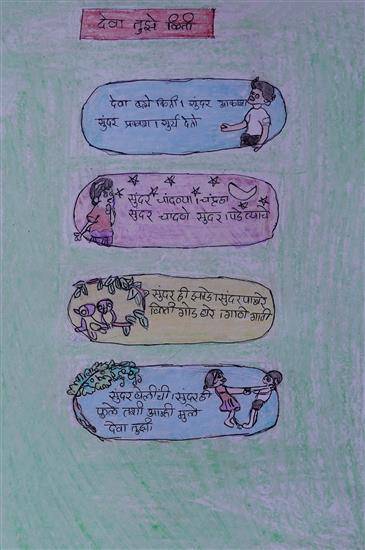 देवा तुझे किती
देवा तुझे किती। सुंदर आकाश
सुंदर प्रकाश। सूर्य देतो
सुंदर चांदण्या। चंद्र हा
सुंदर चांदणे सुंदर पडे त्याचे
सुंदर ही झाडे। सुंदर पाखरे
किती गोड बरे। गाणी गाती
सुंदर वेलींची। सुंदर ही
फुले तशी आम्ही मुले
देवा तुझी